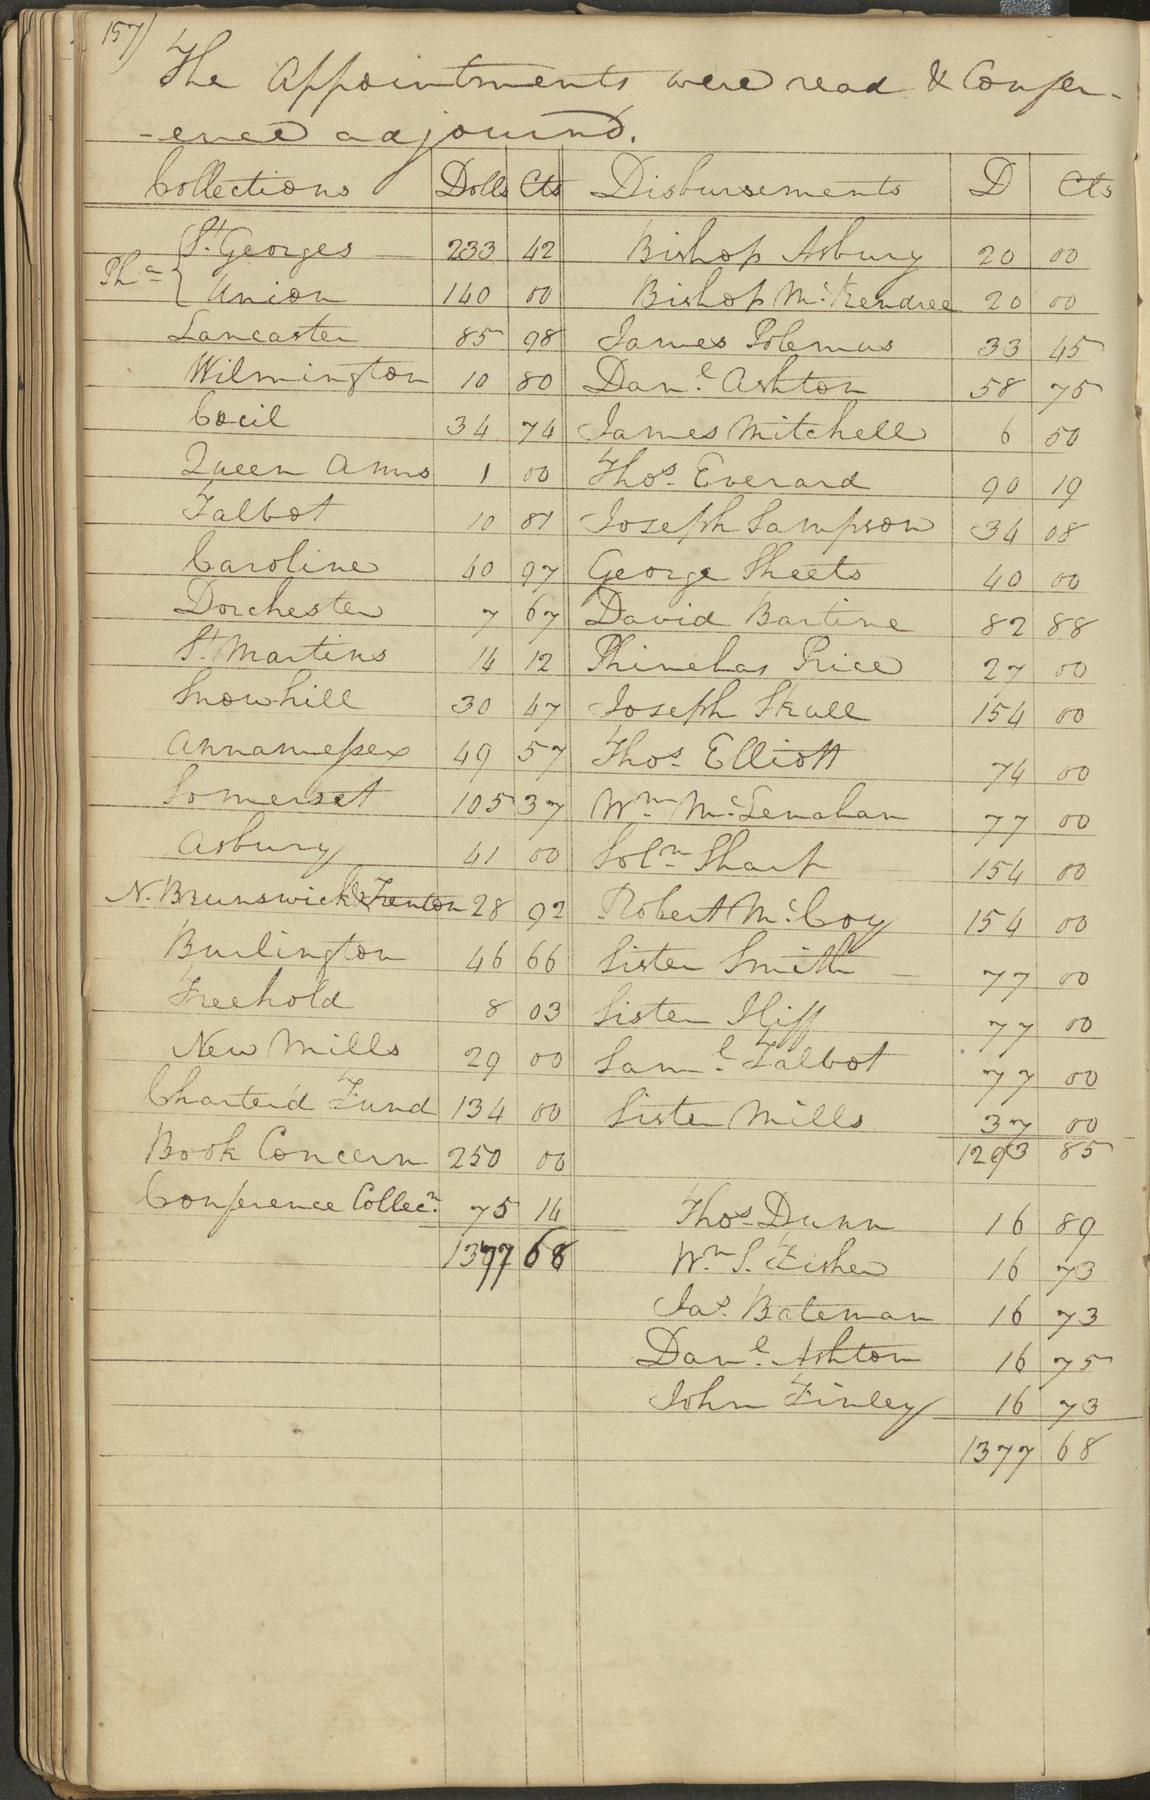 157)
The Appointments were read & Confer-
-ence adjournd.
Collections Dolls Cts Disbursements D Cts
Pha { St Georges 233 42 Bishop Asbury 20 00
Union 140 00 Bishop Mc Kendree 20 00
Lancaster 85 98 James Polemus 33 45
Wilmington 10 80 Danl Ashton 58 75
Cecil 34 74 James Mitchell 6 50
Queen Anns 1 00 Thos Everard 90 19
Talbot 10 81 Joseph Sampson 34 08
Caroline 40 97 George Sheets 40 00
Dorchester 7 67 David Bartine 82 88
St Martins 14 12 Phinehas Price 27 00
Snowhill 30 47 Joseph Skull 154 00
Annamessex 49 57 Thos Elliott 74 00
Somerset 105 37 Wm Mc Lenahan 77 00
Asbury 41 00 Soln Sharp 154 00
N. Brunswick & Trenton 28 92 Robert Mc Coy 154 00
Burlington 46 66 Sister Smith 77 00
Freehold 8 03 Sister Iliff 77 00
New Mills 29 00 Saml Talbot 77 00
Charterd Fund 134 00 Sister Mills 37 00
Book Concern 250 00 1293 85
Conference Collecn 75 14 Thos Dunn 16 89
1377 68 Wm S. Fisher 16 73
Jas Bateman 16 73
Danl Ashton 16 75
John Finley 16 73
1377 68